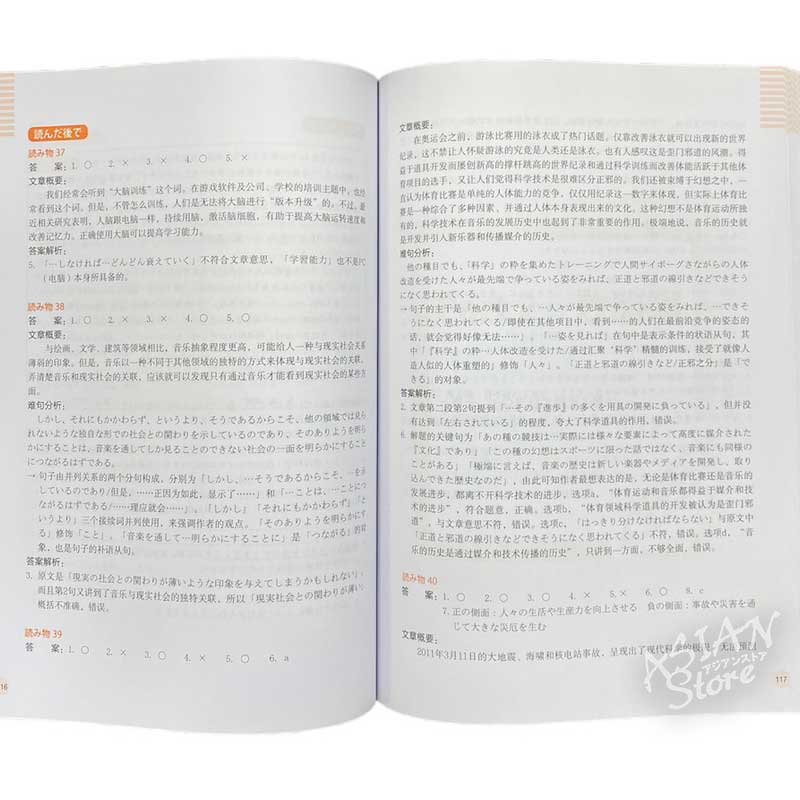 読んだ後で
読み物 37
答 案：1. 〇 2. × 3. × 4. 〇 5. ×
文章概要：
我们经常会听到“大脑训练”这个词。在游戏软件及公司、学校的培训主题中，也经
常看到这个词。但是，不管怎么训练，人们是无法将大脑进行“版本升级”的。不过，最
近相关研究表明，人脑跟电脑一样，持续用脑，激活脑细胞，有助于提高大脑运转速度和
改善记忆力。正确使用大脑可以提高学习能力。
答案解析：
5. 「…しなければ…どんどん衰えていく」不符合文章意思，「学習能力」也不是PC
（电脑）本身所具备的。
読み物 38
答 案：1. 〇 2. × 3. × 4. 〇 5. 〇
文章概要：
与绘画、文学、建筑等领域相比，音乐抽象程度更高，可能给人一种与现实社会关系
薄弱的印象。但是，音乐以一种不同于其他领域的独特的方式来体现与现实社会的关联。
弄清楚音乐和现实社会的关联，应该就可以发现只有通过音乐才能看到现实社会的某些方
面。
难句分析：
しかし、それにもかかわらず、というより、そうであるからこそ、他の領域では見ら
れないような独自な形での社会との関わりを示しているのであり、そのありようを明らか
にすることは、音楽を通してしか見ることのできない社会の一面を明らかにすること
につながるはずである。
→ 句子由并列关系的两个分句构成，分别为「しかし、…そうであるからこそ、…を示
しているのであり/但是，……正因为如此，显示了……」和「…ことは、…ことにつ
ながるはずである/……理应就会……」。「しかし」「それにもかかわらず」「と
いうより」三个接续词并列使用，来强调作者的观点。「そのありようを明らかにす
る」修饰「こと」，「音楽を通して…明らかにすること に」是「つながる」的对
象，也是句子的补语从句。
答案解析：
3. 原文是「現実の社会との関わりが薄いような印象を与えてしまうかもしれない」，
而且第2句又讲到了音乐与现实社会的独特关联，所以「現実社会との関わりが薄い」
概括不准确，错误。
読み物 39
答 案：1. 〇 2. × 3. 〇 4. × 5. 〇 6. a
16
文章概要：
在奥运会之前，游泳比赛用的泳衣成了热门话题。仅靠改善泳衣就可以出现新的世界
纪录，这不禁让人怀疑游泳的究竟是人类还是泳衣。也有人感叹这是歪门邪道的风潮。得
益于道具开发而屡创新高的撑杆跳高的世界纪录和通过科学训练而改善体能活跃于其他体
育项目的选手，又让人们觉得科学技术是很难区分正邪的。我们还被束缚于幻想之中，一
直认为体育比赛是单纯的人体能力的竞争，仅仅用纪录这一数字来体现，但实际上体育比
赛是一种综合了多种因素、并通过人体本身表现出来的文化。这种幻想不是体育运动所独
有的，科学技术在音乐的发展历史中也起到了非常重要的作用。极端地说，音乐的历史就
是开发并引入新乐器和传播媒介的历史。
难句分析：
他の種目でも、「科学」の粋を集めたトレーニングで人間サイボーグさながらの人体
改造を受けた人々が最先端で争っている姿をみれば、正道と邪道の線引きなどできそう
になく思われてくる。
→ 句子的主干是「他の種目でも、…人々が最先端で争っている姿をみれば、…できそ
うになく思われてくる/即使在其他项目中，看到……的人们在最前沿竞争的姿态的
话，就会觉得好像无法……」。「…姿を見れば」在句中是表示条件的状语从句，其
中「『科学』の粋…人体改造を受けた/通过汇聚“科学”精髓的训练，接受了就像人
造人似的人体重塑的」修饰「人々」。「正道と邪道の線引きなど/正邪之分」是「でき
る」的对象。
答案解析：
2. 文章第二段第2句提到「…その『進歩』の多くを用具の開発に負っている」，但并没
有达到「左右されている」的程度，夸大了科学道具的作用，错误。
6. 解题的关键句为「あの種の競技は…実際には様々な要素によって高度に媒介された
『文化』であり」「この種の幻想はスポーツに限った話ではなく、音楽にも同様の
ことがある」「極端に言えば、音楽の歴史は新しい楽器やメディアを開発し、取り
込んできた歴史なのだ」，由此可知作者最想表达的是，无论是体育比赛还是音乐的
发展进步，都离不开科学技术的进步，选项a，“体育运动和音乐都得益于媒介和技
术的进步”，符合题意，正确。选项b，“体育领域科学道具的开发被认为是歪门邪
道”，与文章意思不符，错误。选项c，「はっきり分けなければならない」与原文中
「正道と邪道の線引きなどできそうになく思われてくる」不符，错误。选项d，“音
乐的历史是通过媒介和技术传播的历史”，只讲到一方面，不够全面，错误。
読み物 40
答 案：1. 〇 2. × 3. × 4. 〇 5. × 6. 〇 8. c
7. 正の側面：人々の生活や生産力を向上させる 負の側面：事故や災害を通
じて大きな災厄を生む
文章概要：
2011年3月11日的大地震、海啸和核电站事故，呈现出了现代科学的极限，无法预测
117
ASIAN
アジアンストア
Store